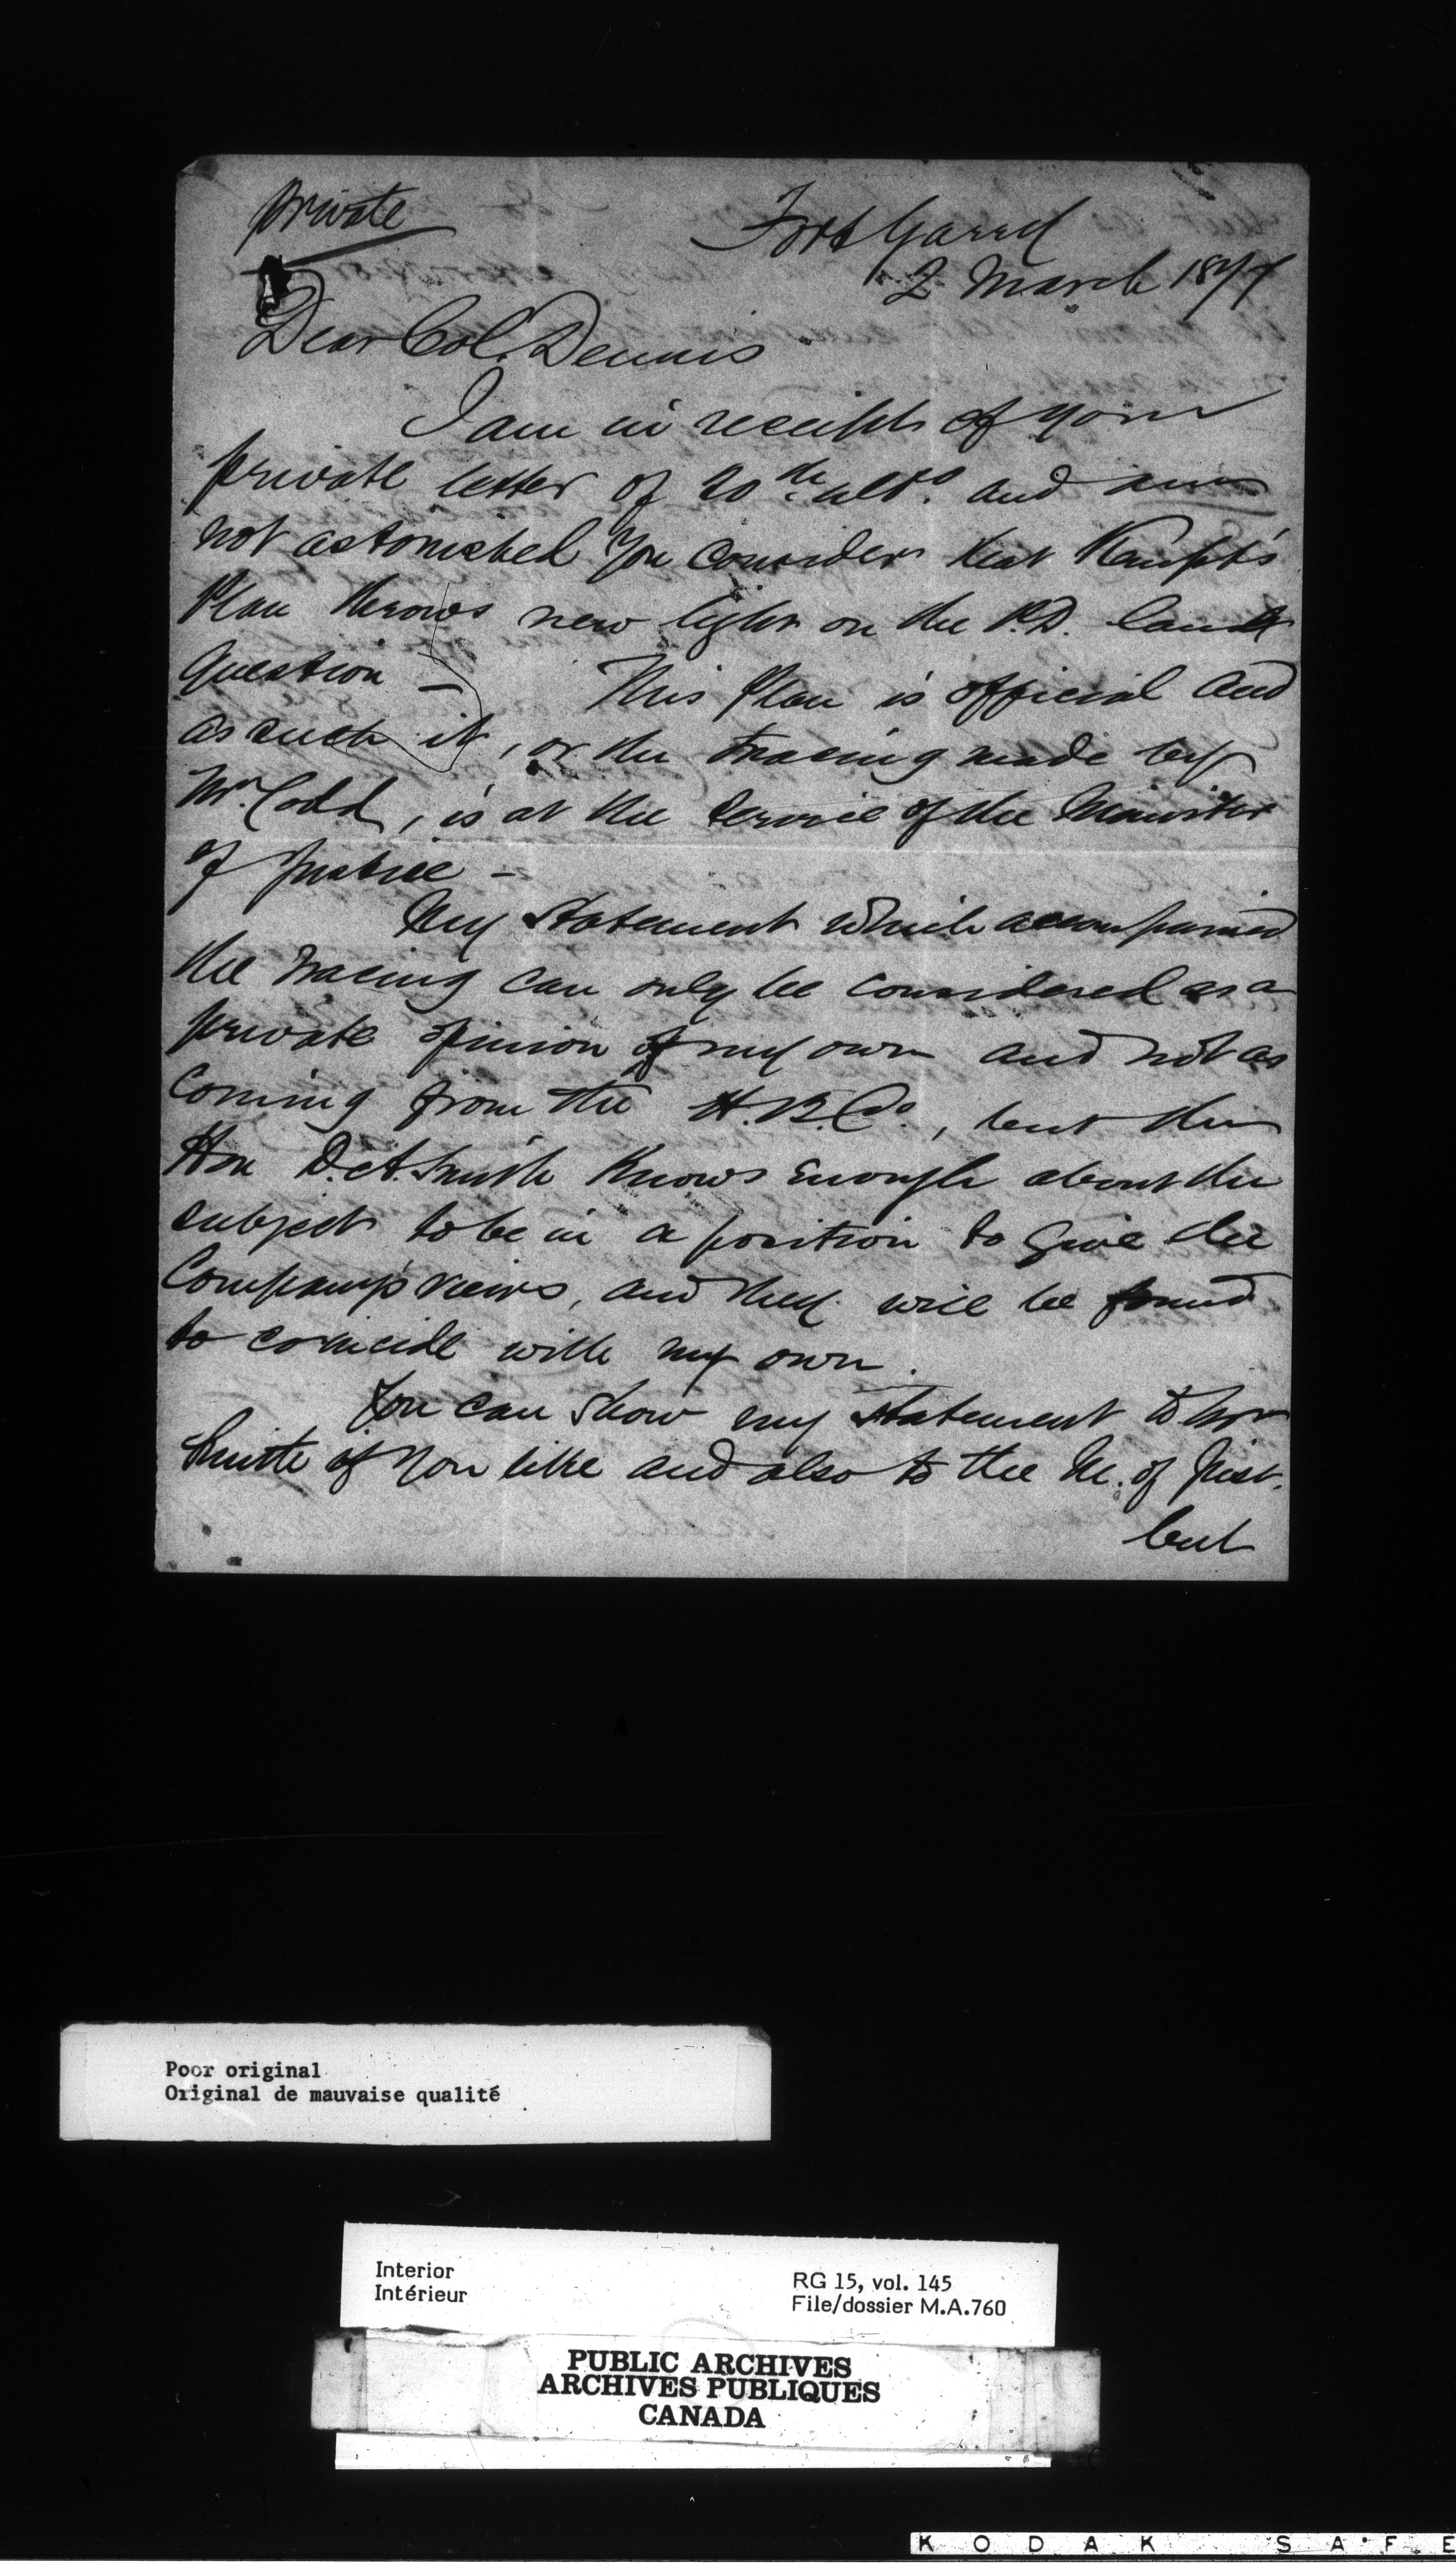 Private
Fort Garry
2 March 1877
Dear Col. Dennis
I am in receipt of your
private letter of 20th ulto. and am
not astonished you consider that Kempt's
Plan throws new light on the P.D. lands
question — This Plan is official and
as such it, or the tracing made by
Mr. Codd, is at the service of the Minister
of Justice —
My Statement which accompanied
the tracing can only be considered as a
private opinion of my own and not as
coming from the H.B.Co., but the
Hon D.A. Smith Knows Enough about the
subject to be in a position to Give the
Company's views, and they will be found
to coincide with my own.
You can show my statement to Mr
Smith if you like and also to the M. of Just.
but
Poor original
Original de mauvaise qualité
Interior
Intérieur
RG 15, vol. 145
File/dossier M.A.760
PUBLIC ARCHIVES
ARCHIVES PUBLIQUES
CANADA
KODAK SAFE